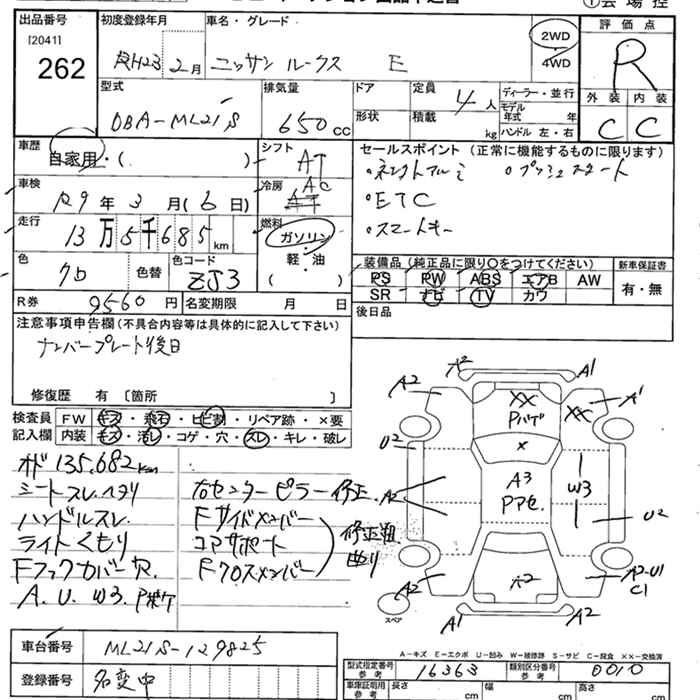 出品番号 初度登録年月 車名・グレード ①会場控
[2041] 262 H23 2月 ニッサン ルークス E 2WD 4WD
評価点 R
外装 内装
C C
型式 排気量 ドア 定員 ディーラー・並行
DBA-ML21S 650cc 形状 積載 4人 kg モデル年式 年 ハンドル 左・右
車歴 自家用・( ) シフト AT
セールスポイント(正常に機能するものに限ります)
車検 R9年3月(6日) 冷房 AC
・プッシュスタート
・ETC
・スマートキー
走行 13万5千685km 燃料 ガソリン 軽・油 ( )
色 クロ 色替 色コード ZJ3
装備品(純正品に限り○をつけてください) 新車保証書
PS PW ABS エアB AW 有・無
SR ナビ TV カワ
R券 9560円 名変期限 月 日
後日品
注意事項申告欄(不具合内容等は具体的に記入して下さい)
ナンバープレート後日
修復歴 有 [箇所 ]
検査員 FW キズ・飛石・ヒビ割・リペア跡・×要
記入欄 内装 キズ・汚レ・コゲ・穴・スレ・キレ・破レ
オド 135,682km
シートスレヘタリ 右センターピラー修正
ハンドルスレ Fサイドメンバー
ライトくもり コアサポート 修正粗
Fクロスメンバー 曲り
A. U. W3.
A2 A1
A2 XX XX A1
Pハゲ
U2 ×
A2 A3 W3
Pアセ U2
A2 A2 A2・U1
C1
スペア A1 A2
A-キズ E-エクボ U-凹み W-補修跡 S-サビ C-腐食 ××-交換済
車台番号 ML21S-129825
型式指定番号 参考 16363 類別区分番号 参考 0010
登録番号 名変中
車庫証明用 参考 長さ cm 幅 cm 高さ cm